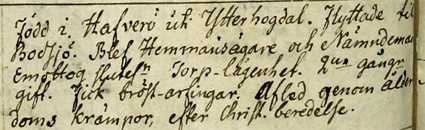 Född i Hafverö utj Ytterhogdal. Flyttade til
Bodsjö. Blef Hemmansägare och Nämndeman
Emottog sluteln Torp-lägenhet. 2ne gångr
gift. Fick bröst-arfingar. Afled genom ålder
doms krämpor, efter Christ. beredelse.